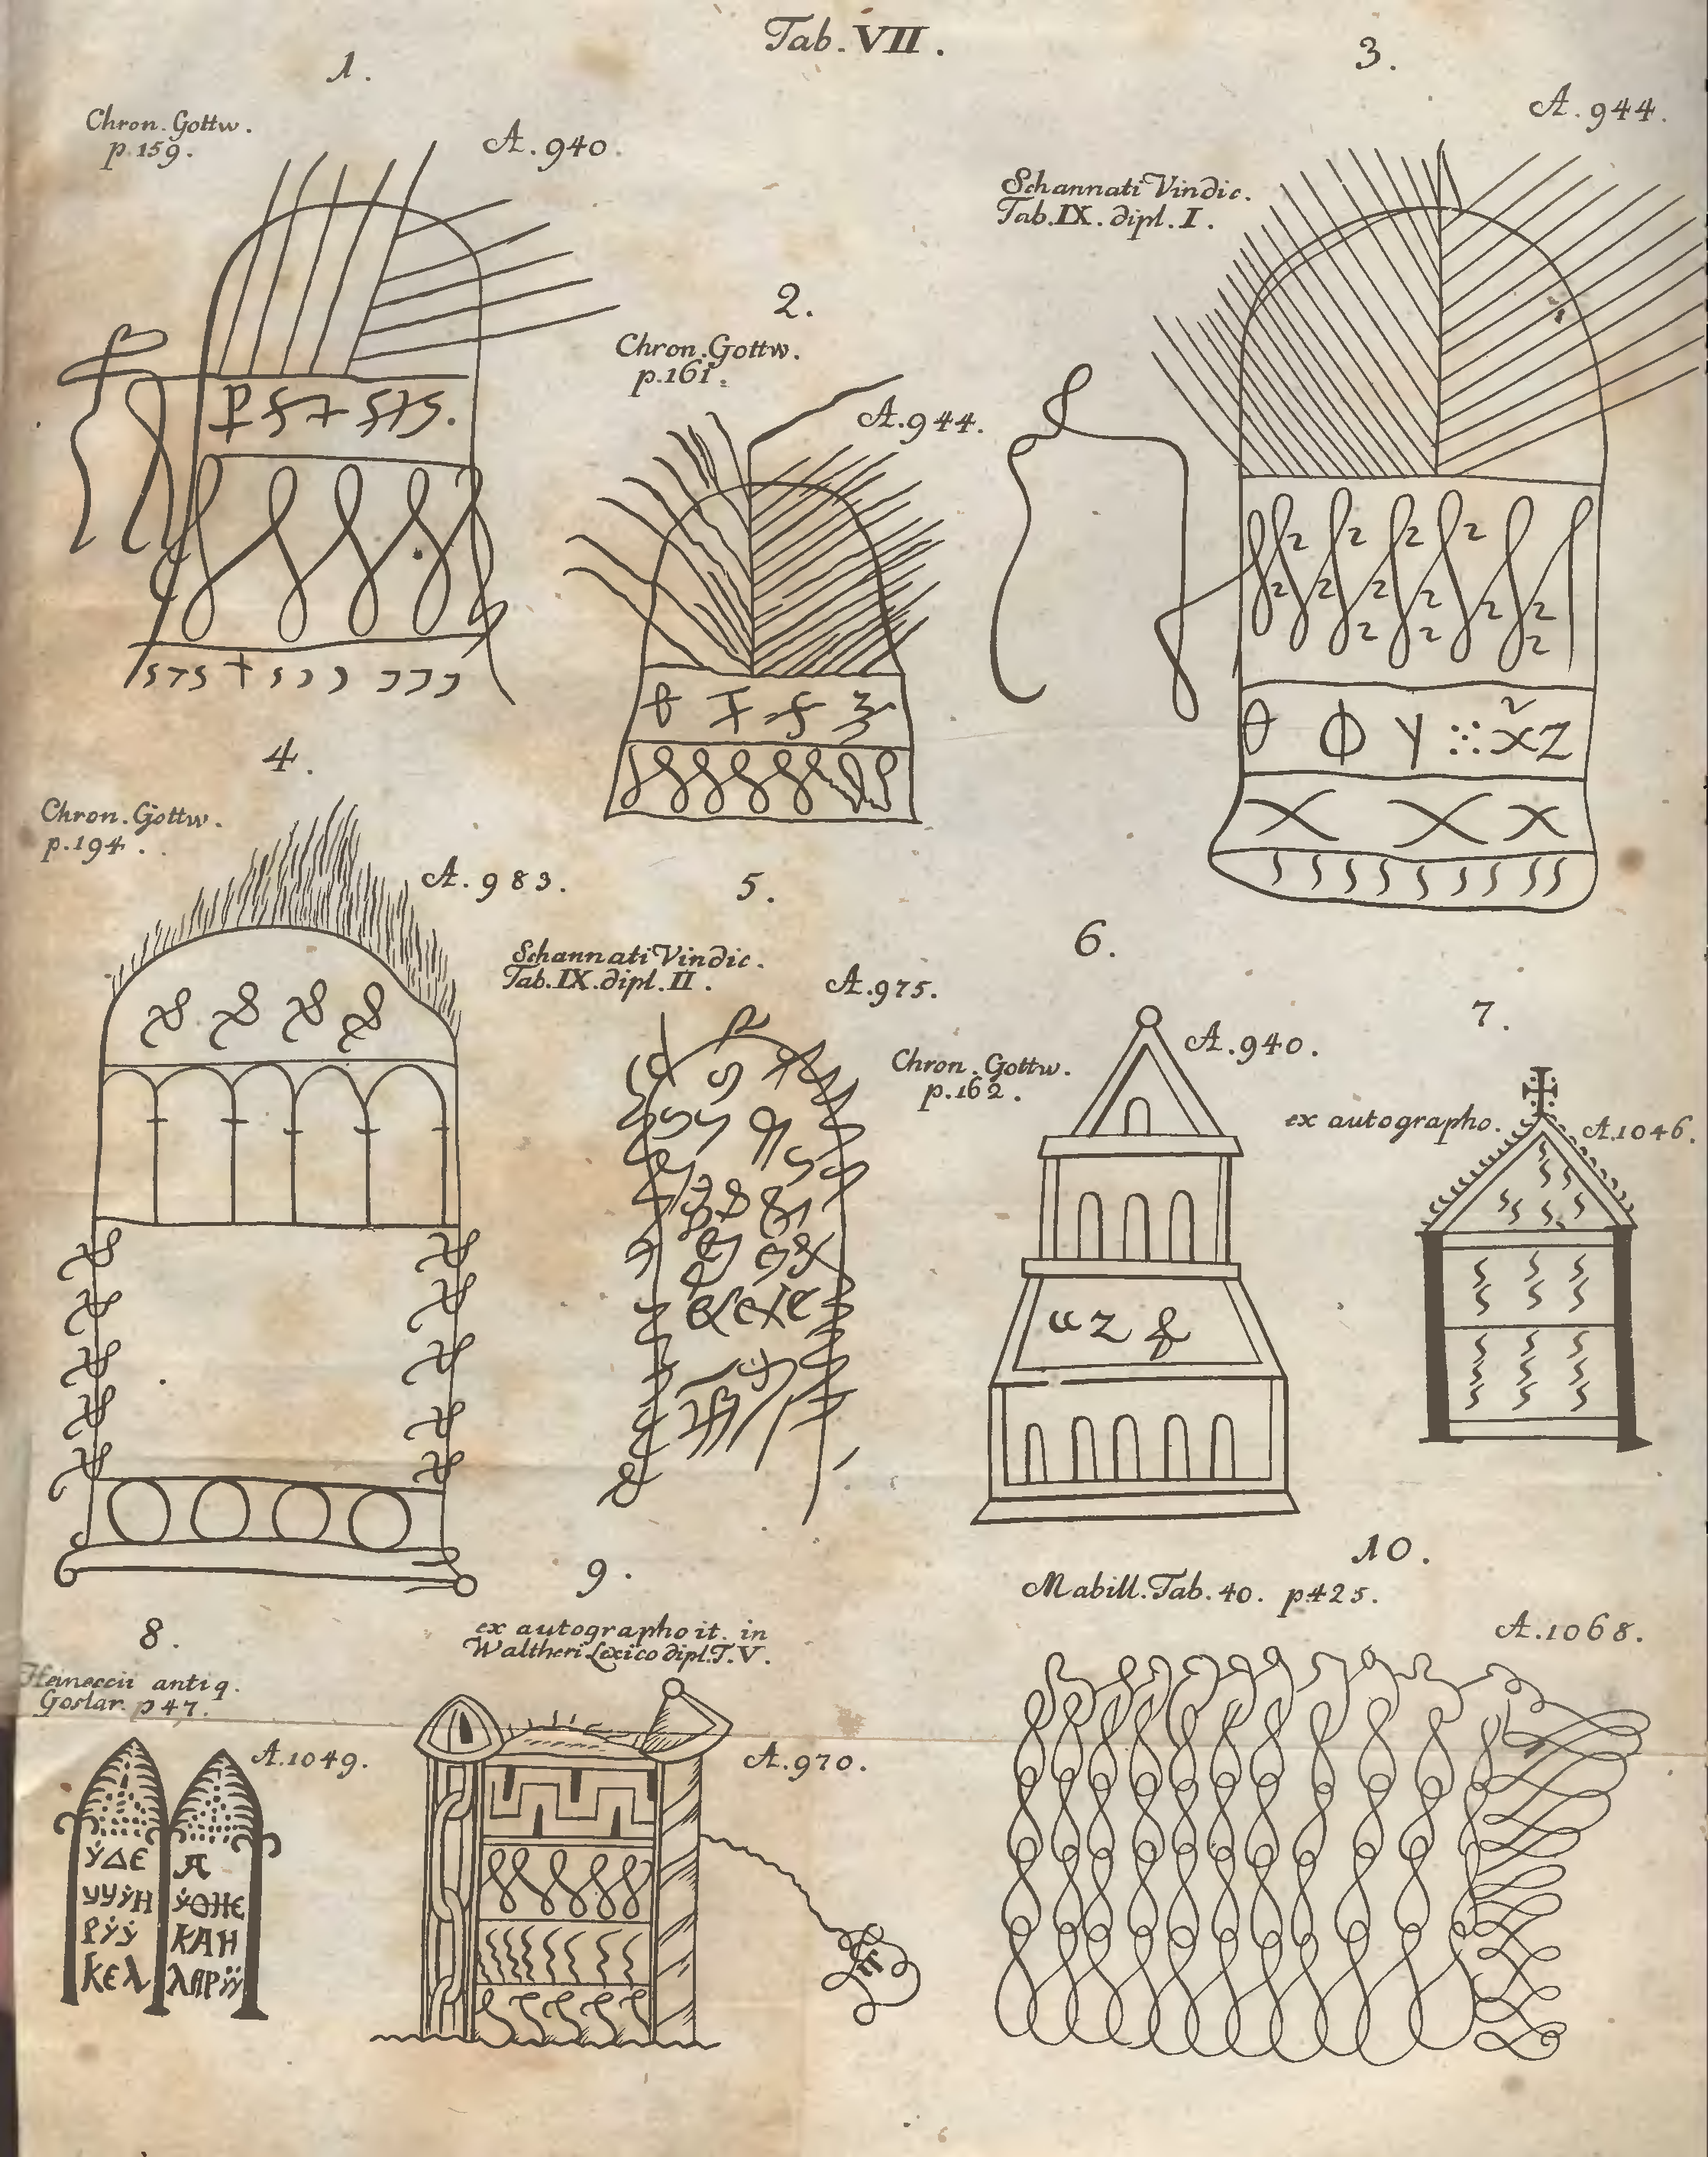 Tab. VII.
1.
Chron. Gottw.
p. 159.
A. 940.
2.
Chron. Gottw.
p. 161.
A. 944.
3.
A. 944.
Schannati Vindic.
Tab. IX. dipl. I.
4.
Chron. Gottw.
p. 194.
A. 983.
5.
Schannati Vindic.
Tab. IX. dipl. II.
A. 975.
6.
Chron. Gottw.
p. 162.
A. 940.
7.
ex autographo.
A. 1046.
8.
Heineccii antiq.
Goslar. p 47.
A. 1049.
ΚΑΗ
9.
ex autographo it. in
Waltheri Lexico dipl. T. V.
A. 970.
10.
Mabill. Tab. 40. p 425.
A. 1068.